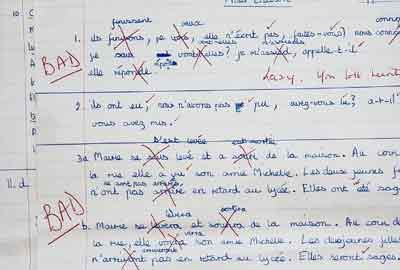 finissent veux
1. ils finissons, je vois, elle n'écrit pas, faites-vous? nous conn
je sais vont-elles? je m'assied, appelle-t-il
BAD
elle réponde Lazy.
2. ils ont eu, nous n'avons pas pu, avez-vous lu? a-t-il
vous avez mis.
s'est levée est sortie
3a Marie se suis levé et a sorti de la maison. Au cour
la rue elle a vu son amie Michelle. Les deux jeunes f
ne sont pas arrivés
n'ont pas arrivé en retard au lycée. Elles ont été sag
11. d
BAD
lèvera sortira
b. Marie se levera et sortira de la maison. Au cour d
verra
la rue, elle voyra son amie Michelle. Les deux jeunes filles
n'arriveront pas en retard au lycée. Elles seront sages.